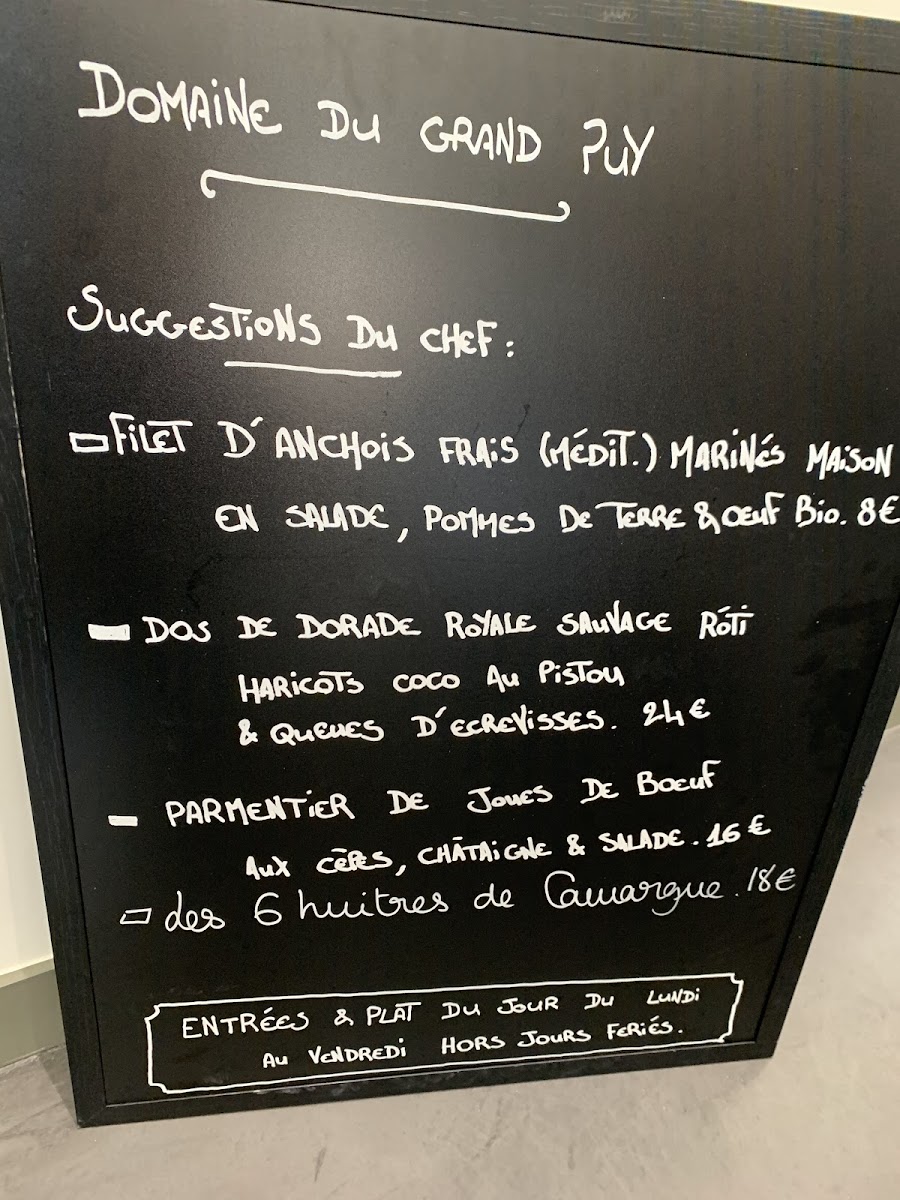 DOMAINE DU GRAND PUY
SUGGESTIONS DU CHEF :
FILET D'ANCHOIS FRAIS (MÉDIT.) MARINÉS MAISON
EN SALADE, POMMES DE TERRE & OEUF BIO. 8€
DOS DE DORADE ROYALE SAUVAGE RÔTI
HARICOTS COCO AU PISTOU
& QUEUES D'ECREVISSES. 24€
PARMENTIER DE JOUES DE BOEUF
AUX CÈPES, CHÂTAIGNE & SALADE. 16€
des 6 huitres de Camargue. 18€
ENTRÉES & PLAT DU JOUR DU LUNDI
AU VENDREDI HORS JOURS FERIÉS.